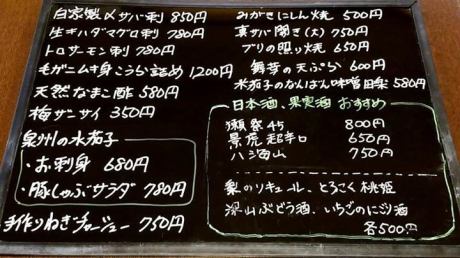 自家製〆サバ刺 850円
生キハダマグロ刺 780円
トロサーモン刺 780円
毛ガニムキ身こうら詰め 1200円
天然なまこ酢 580円
梅ザーサイ 350円
泉州の水茄子
・お刺身 680円
・豚しゃぶサラダ 780円
手作りねぎチャーシュー 750円
みがきにしん焼 500円
真サバ開き(大) 750円
ブリの照り焼 650円
舞茸の天ぷら 600円
水茄子のなんばん味噌田楽 580円
日本酒、果実酒 おすすめ
獺祭45 800円
景虎 超辛口 650円
八海山 750円
梨のリキュール、とろこく桃姫
深山ぶどう酒、いちごのにごり酒
各500円